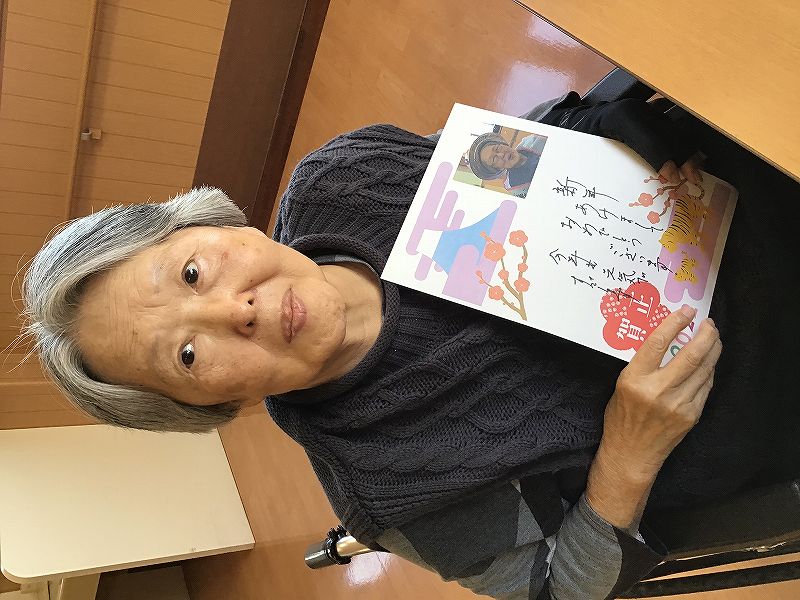 新年あけまして
おめでとう
ございます
今年も元気
賀正
202